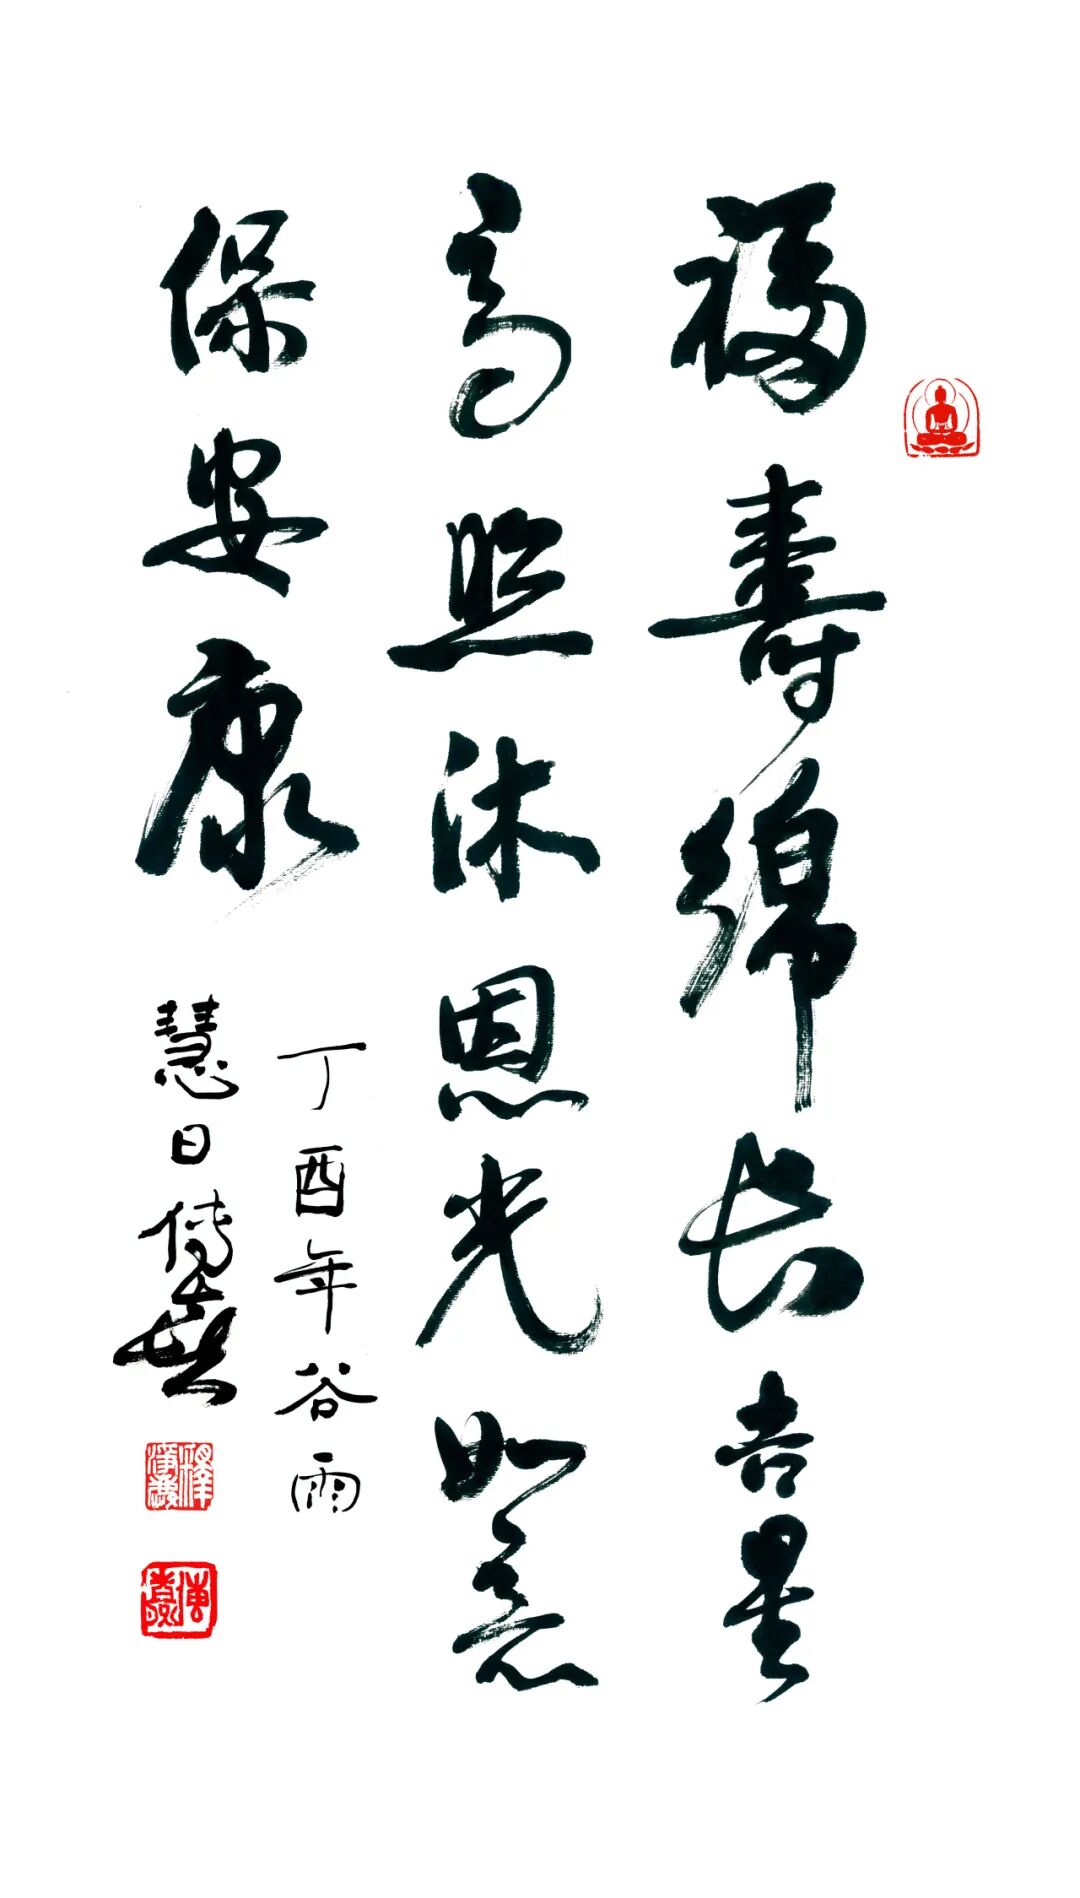 福寿绵长吉星
高照沐恩光如意
保安康
丁酉年谷雨
慧日传喜